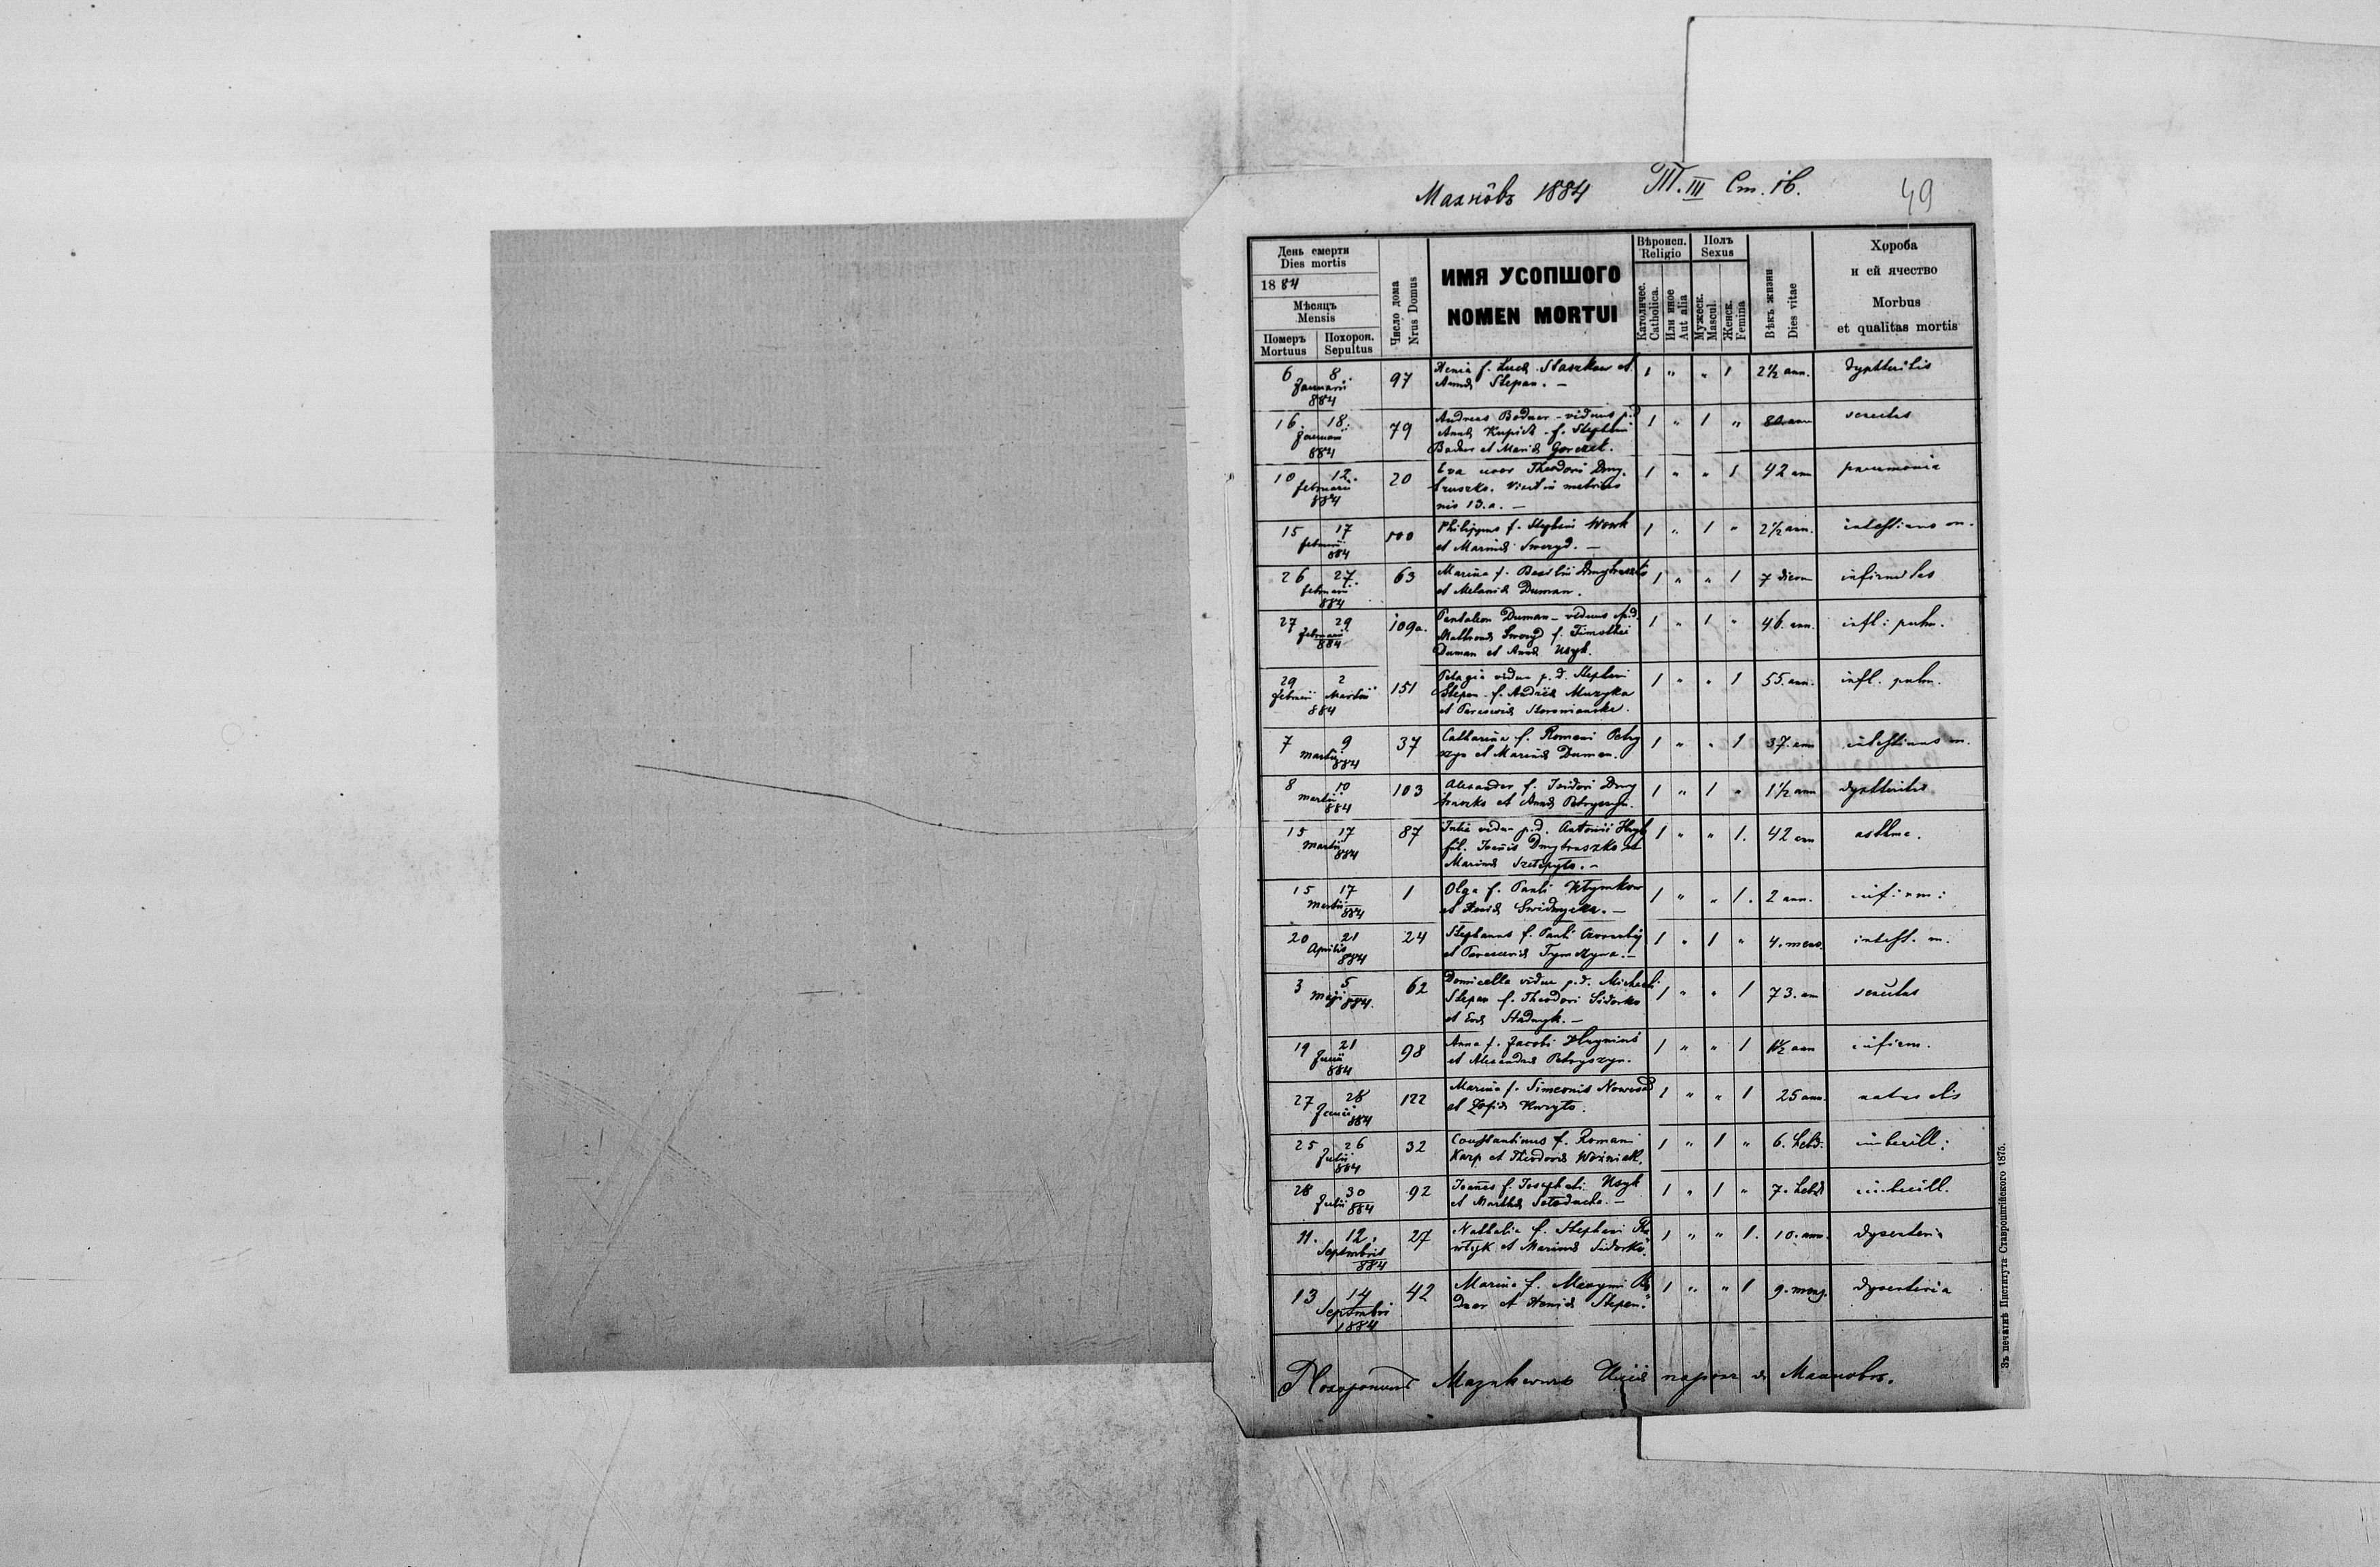 Махнôвъ 1884 Т. III Ст. 16.
49
День смерти
Dies mortis
1884
Мѣсяць
Mensis
Померъ Похорон.
Mortuus Sepultus
Число дома
Nrus Domus
ИМЯ УСОПШОГО
NOMEN MORTUI
Вѣроисп.
Religio
Католичес.
Catholica.
Или иное
Aut alia
Полъ
Sexus
Мужеск.
Mascul.
Женск.
Femina
Вѣкъ жизни
Dies vitae
Хороба
и ей ячество
Morbus
et qualitas mortis
6 8 97 Xenia f. Lucä Staszkow et 1 " " 1 2½ ann. dyphteritis
Januarii Annä Stepan. –
884
16. 18. 79 Andreas Bodnar - viduus p.d 1 " 1 " 80 ann senectus
Januarii Annä Kupicz - f. Stephani
884 Bodnar et Mariä
10 12. 20 Eva uxor Theodori Dmy- 1 " " 1 42 ann pneumonia
februarii truszko.
884 13.a. –
15 17 100 Philippus f. Stephani Wowk 1 " 1 " 2½ ann.
februarii et Marinä Sweryd. –
884
26 27. 63 Marina f. Basilii Dmytruszko 1 " " 1 7 dierum infirmitas
februarii et Melaniä Duman.
884
27 29 109a. Pantaleon Duman - viduus p.d. 1 " 1 " 46. ann. infl: pulm.
februarii Matronä Sweryd f. Timothei
884 Duman et Annä Usyk.
29 2 151 Pelagia vidua p. d. Stephani 1 " " 1 55. ann. infl. pulm.
februarii Martii Stepan - f. Andreä Muzyka
884 et Parasceviä
7 9 37 Catharina f. Romani Petry 1 " " 1 37. ann
Martii szyn et Marinä Duman.
884
8 10 103 Alexander f. Isidori Dmy 1 " 1 " 1½ ann dyphteritis
Martii truszko et Annä Petryszyn.
884
15 17 87 Julia vidua p.d. Antonii 1 " " 1. 42 ann asthma.
Martii fil. Joannis Dmytruszko et
884 Marinä
15 17 1 Olga f. Pauli Klymkow 1 " " 1. 2 ann. infirm:
Martii et Xeniä
884
20 21 24 Stephanus f. Pauli 1 " 1 " 4. mens. intest. m.
Aprilis et Parasceviä
884
3 5 62 Domicella vidua p.d. Michaeli 1 " " 1 73. ann senectus
Maji Stepan f. Theodori Sidorko
884. et Evä Stadnyk. –
19 21 98 Anna f. Jacobi 1 " " 1 1½ ann infirm.
Junii et Alexandrä Petryszyn.
884
27 28 122 Marina f. Simeonis Nowosad 1 " " 1 25 ann. naturalis
Junii et Zofiä
884
25 26 32 Constantinus f. Romani 1 " 1 " 6. hebd. imbecill:
Julii Karp et Theodorä Woźniak.
884
28 30 92 Joannes f. Josephati Usyk 1 " 1 " 7. hebd imbecill.
Julii et Marthä
884
11. 12. 27 Nathalia f. Stephani 1 " " 1. 10. ann. dysenteria
Septembris et Marinä Sidorko.
884
13 14 42 Marina f. Maxymi Bo 1 " " 1 9. mens. dysenteria
Septembri dnar et Xeniä Stepan.
1884
Махновѣ.
Зъ печатнѣ Института Ставропигійского 1875.